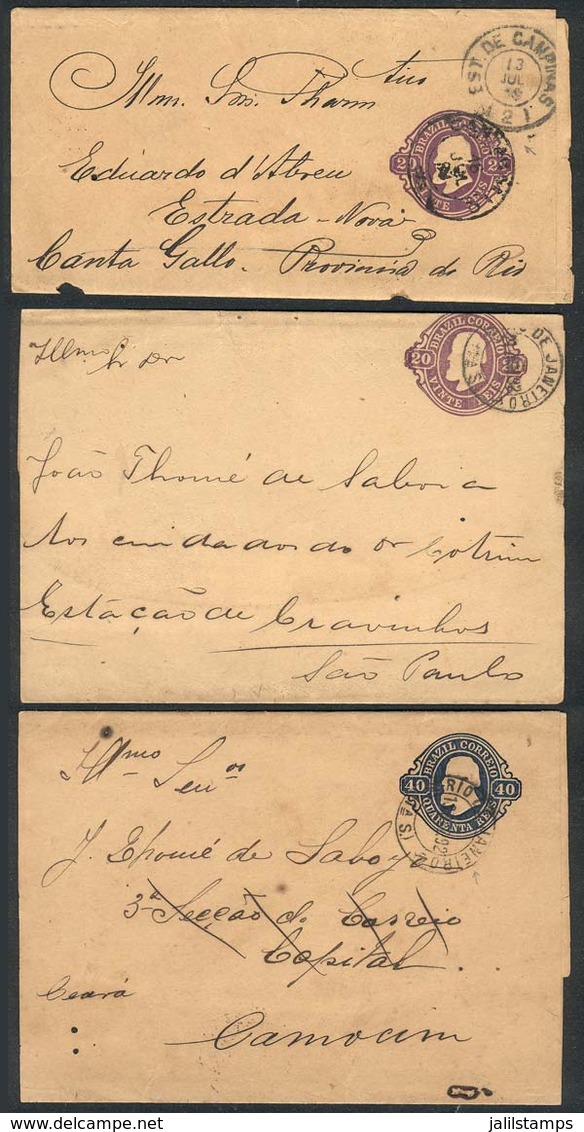 EST. DE CAMPINAS
13
JUL
Illm. Snr. Pharm tico
BRAZIL CORREIO
20
VINTE REIS
Eduardo d'Abreu
Estrada - Nova
Canta Gallo - Provincia do Rio
BRAZIL CORREIO
20
VINTE REIS
DE JANEIRO
Illmo Sr Dr
João Thomé de Saboia
Aos cuidados do Dr Cotrim
Estação de Cravinhos
São Paulo
BRAZIL CORREIO
40 40
QUARENTA REIS
RIO JANEIRO
92
Illmo Senr
J. Thomé de Saboya
3a Secção do Correio
Capital
Ceará
Camocim
www.delcampe.net
jalilstamps